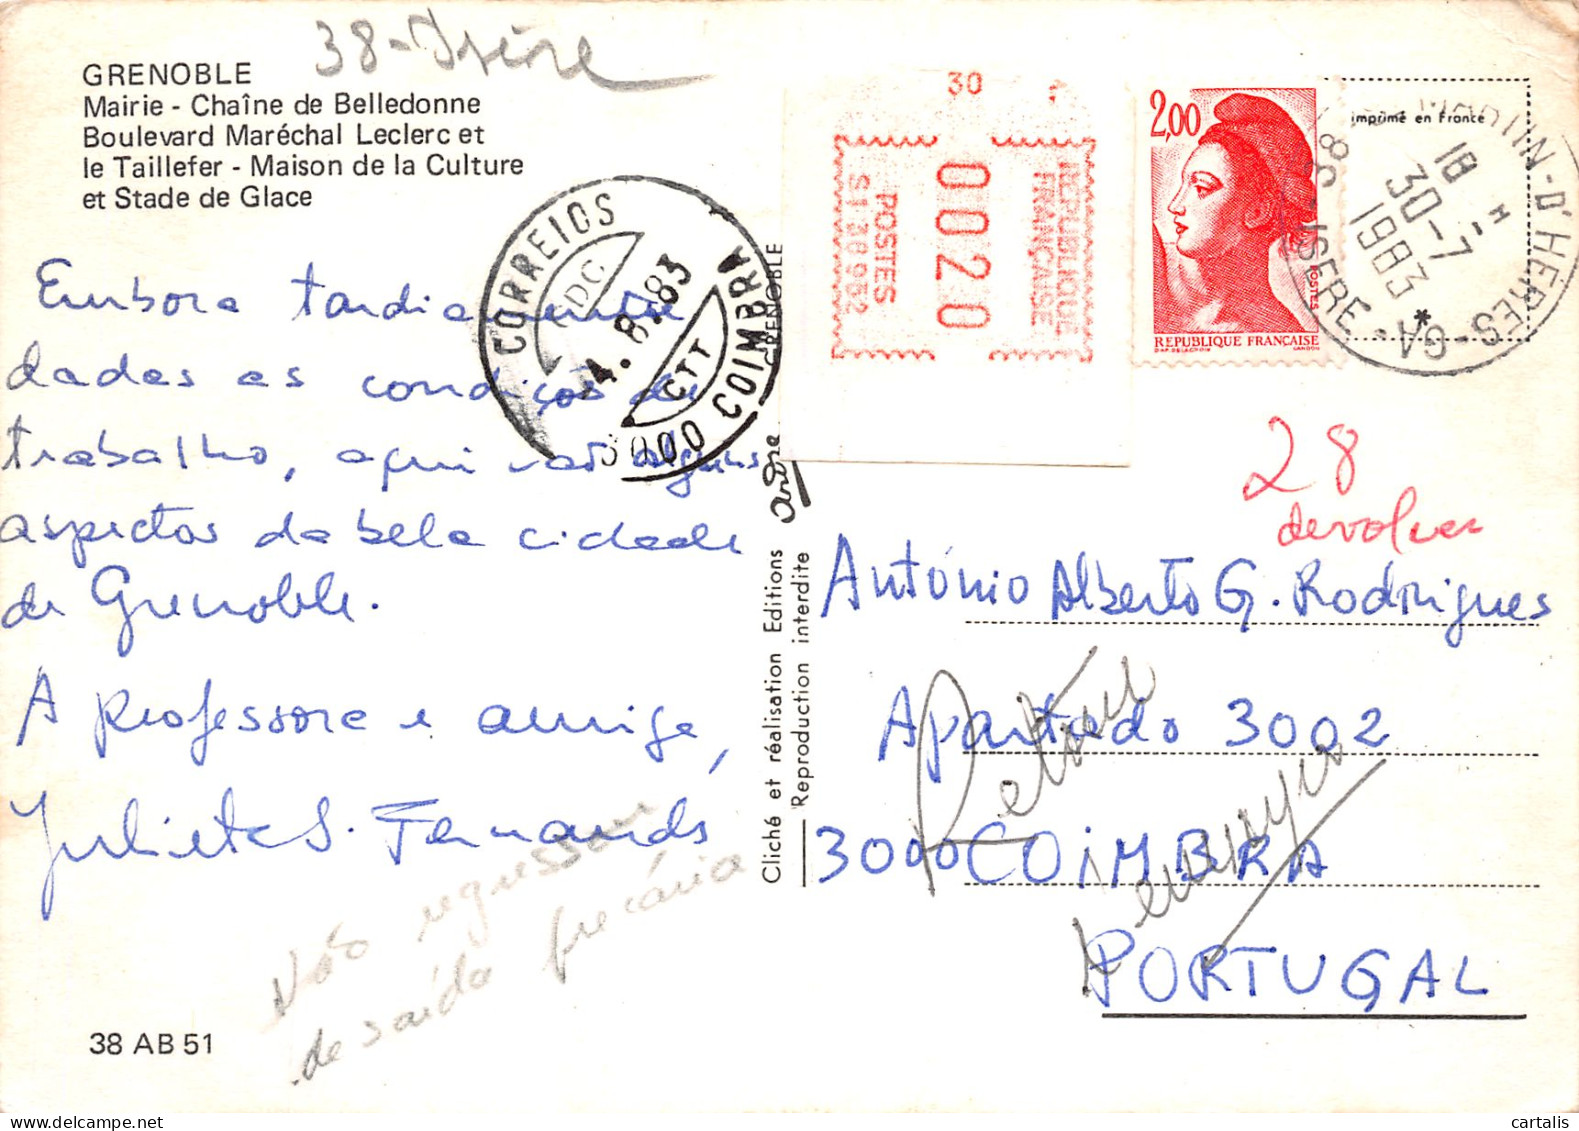 38-Isère
GRENOBLE
Mairie - Chaîne de Belledonne
Boulevard Maréchal Leclerc et
le Taillefer - Maison de la Culture
et Stade de Glace
Embora tardiamente
dadas as condições de
trabalho, aqui vão alguns
aspectos da bela cidade
de Grenoble.
A professora e amiga,
Julieta S. Fernands
Não regressou
de saída precária
38 AB 51
CORREIOS
CDC
4.8.83
CTT
3000 COIMBRA
GRENOBLE
andre
Cliché et réalisation Editions
Reproduction interdite
30
REPUBLIQUE
FRANÇAISE
0020
POSTES
S1 38952
2,00
POSTES
REPUBLIQUE FRANÇAISE
imprimé en France
38 MARTIN-D'HÈRES-GA - ISERE
18 H
30-7
1983
*
28
devolver
António Alberto G. Rodrigues
Apartado 3002
3000 COIMBRA
PORTUGAL
Retour
cartalis
delcampe.net